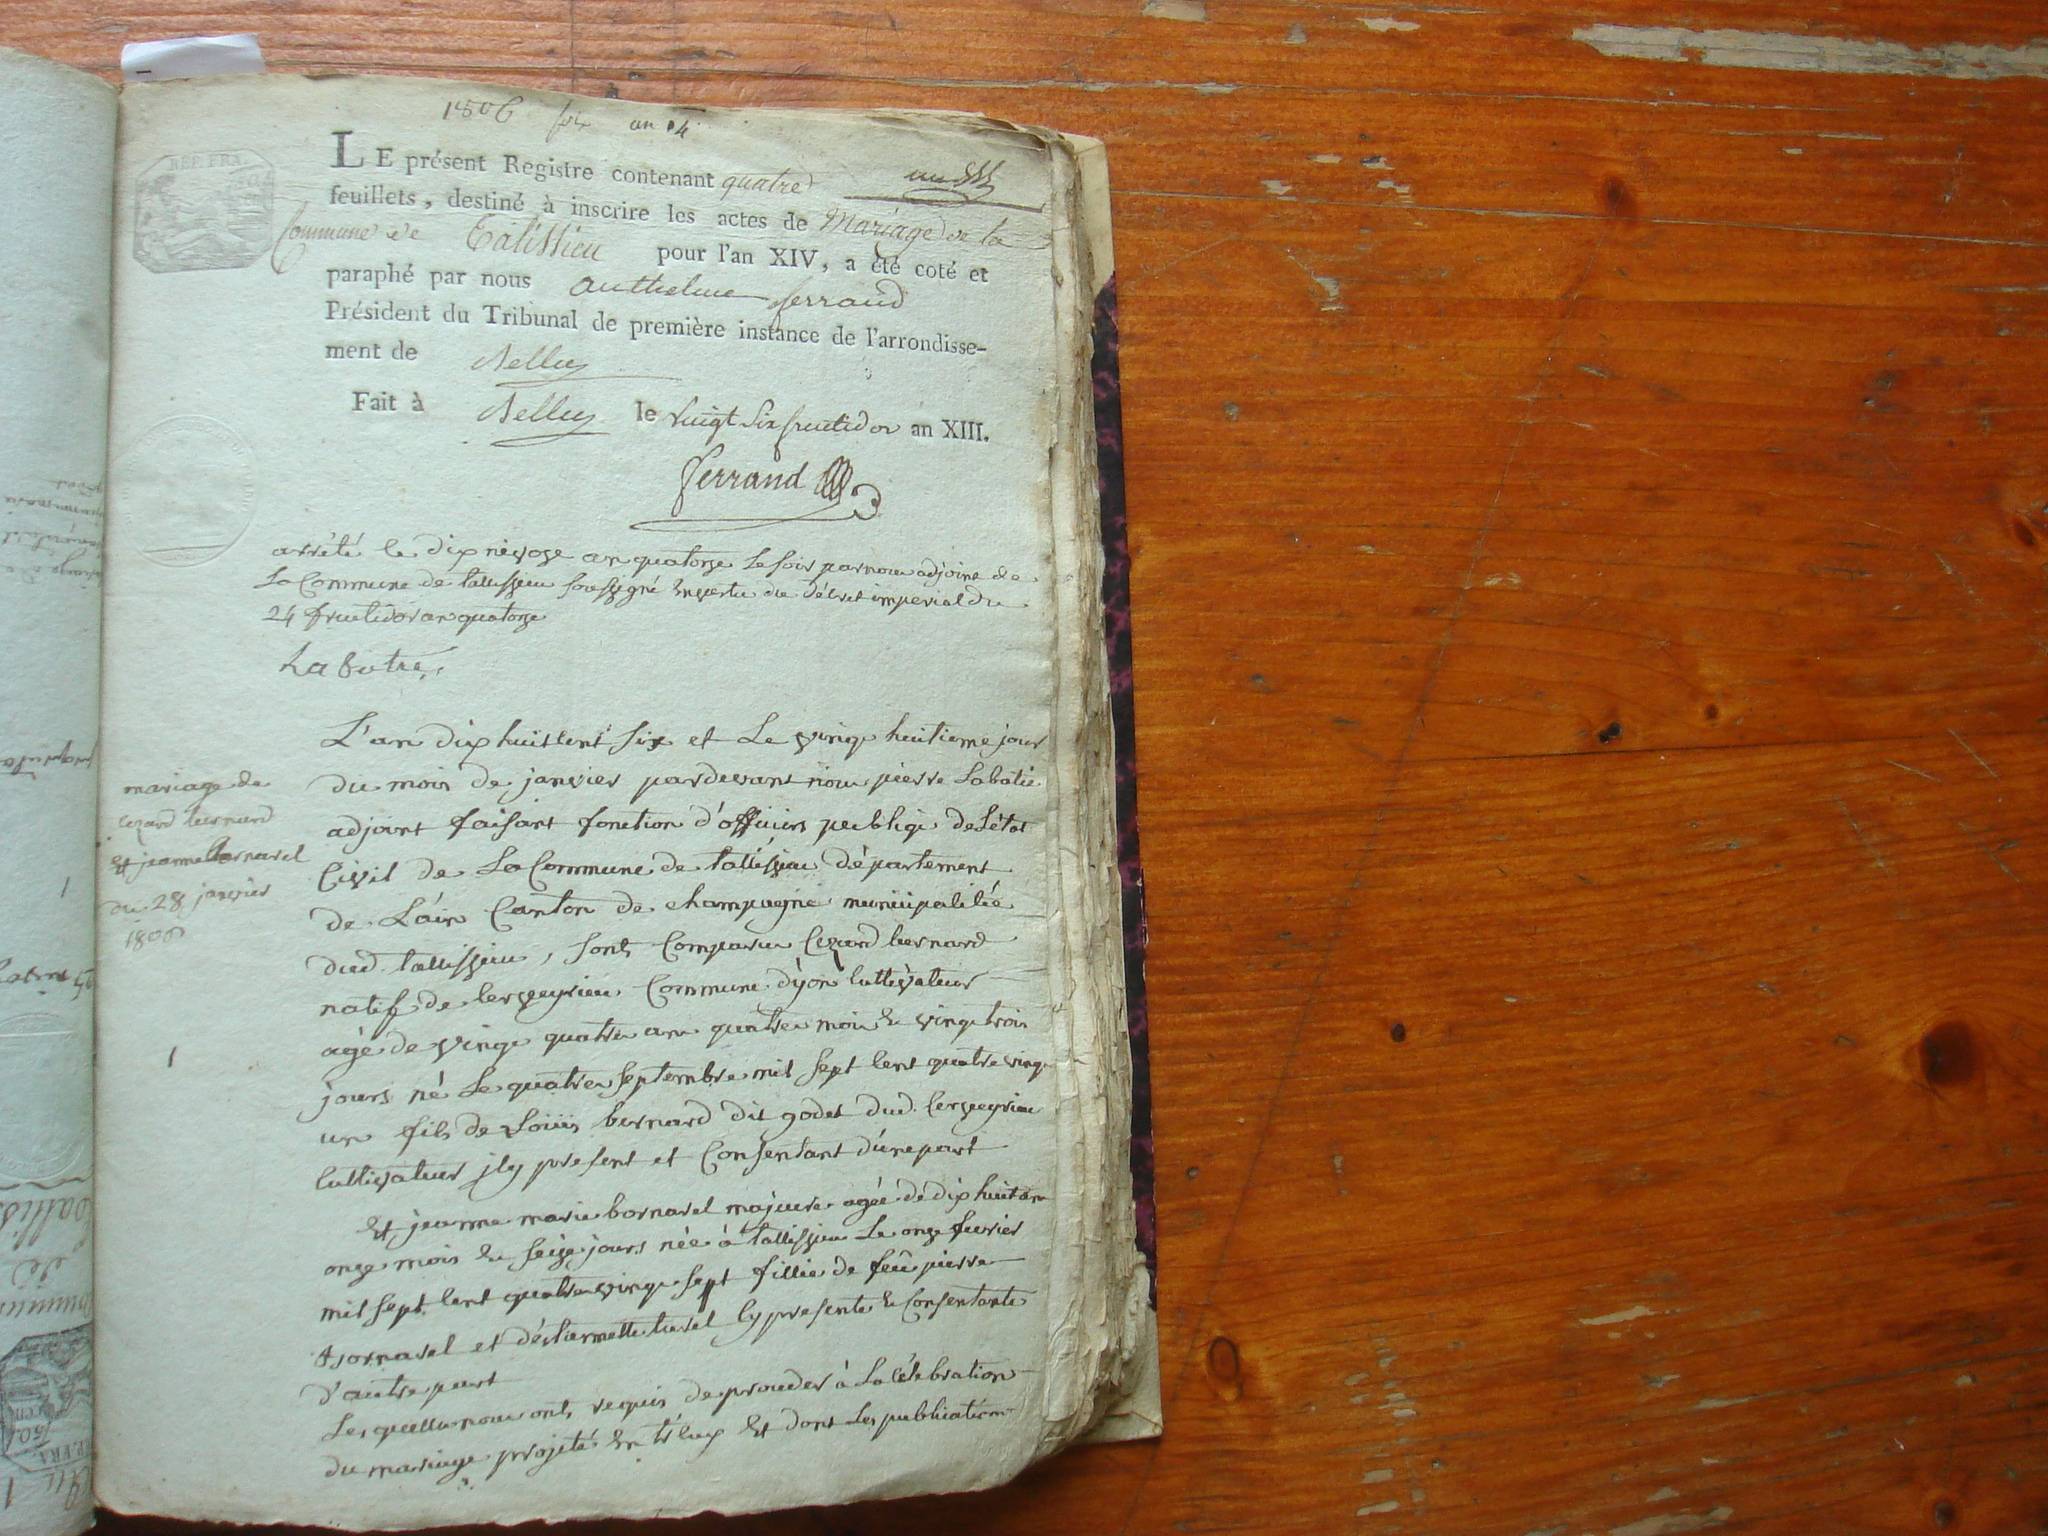 1806 an 14
REP. FRA.
LE présent Registre contenant quatre
feuillets, destiné à inscrire les actes de Mariage de la
Commune de Talissieu pour l'an XIV, a été coté et
paraphé par nous Anthelme ferrand
Président du Tribunal de première instance de l'arrondisse-
ment de Belley
Fait à Belley le vingt Six fructidor an XIII.
ferrand
arrété le dix nivose an quatorze le soir par nou adjoint de
La Commune de talissieu soussigné en vertu du décret imperial du
24 fructidor an quatorze
Labatie
mariage de
cezard bernard
et jeanne bornarel
du 28 janvier
1806
1
L'an dix huit cent six et Le vingt huitieme jour
du mois de janvier pardevant nou pierre Labatie
adjoint faisant fonction d'officiers publiqe de L'état
Civil de La Commune de tallissieu département
de L'ain Canton de champagne municipalitée
dud. tallissieu, sont Comparu Cezard bernard
natif de cerveyrieu Commune d'yon cultivateur
agé de vingt quatre an quatre moi & vingt trois
jours né Le quatre septembre mil sept cent quatre vingt
un fils de Loüis bernard dit godet dud. cerveyrieu
cultivateur jly present et Consentant d'une part
et jeanne marie bornarel majeure agée de dix huit an
onze mois & seize jours née à tallissieu Le onze fevrier
mil sept cent quatre vingt sept fillie de feû pierre
bornarel et d'estiennette cy presente & Consentante
d'autre part
Lesquelle nou ont requis de proceder à La célébration
du mariage projeté entr'eux et dont Les publication